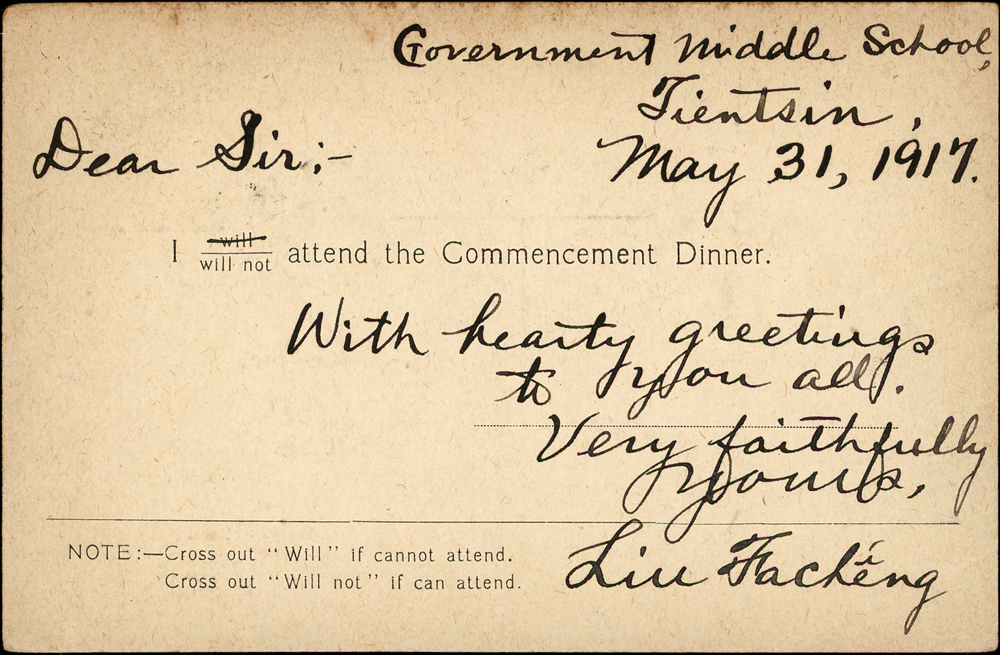 Government Middle School,
Tientsin,
May 31, 1917.
Dear Sir:-
I will
will not attend the Commencement Dinner.
With hearty greetings
to you all.
Very faithfully
yours,
Liu Fachêng
NOTE:—Cross out "Will" if cannot attend.
Cross out "Will not" if can attend.